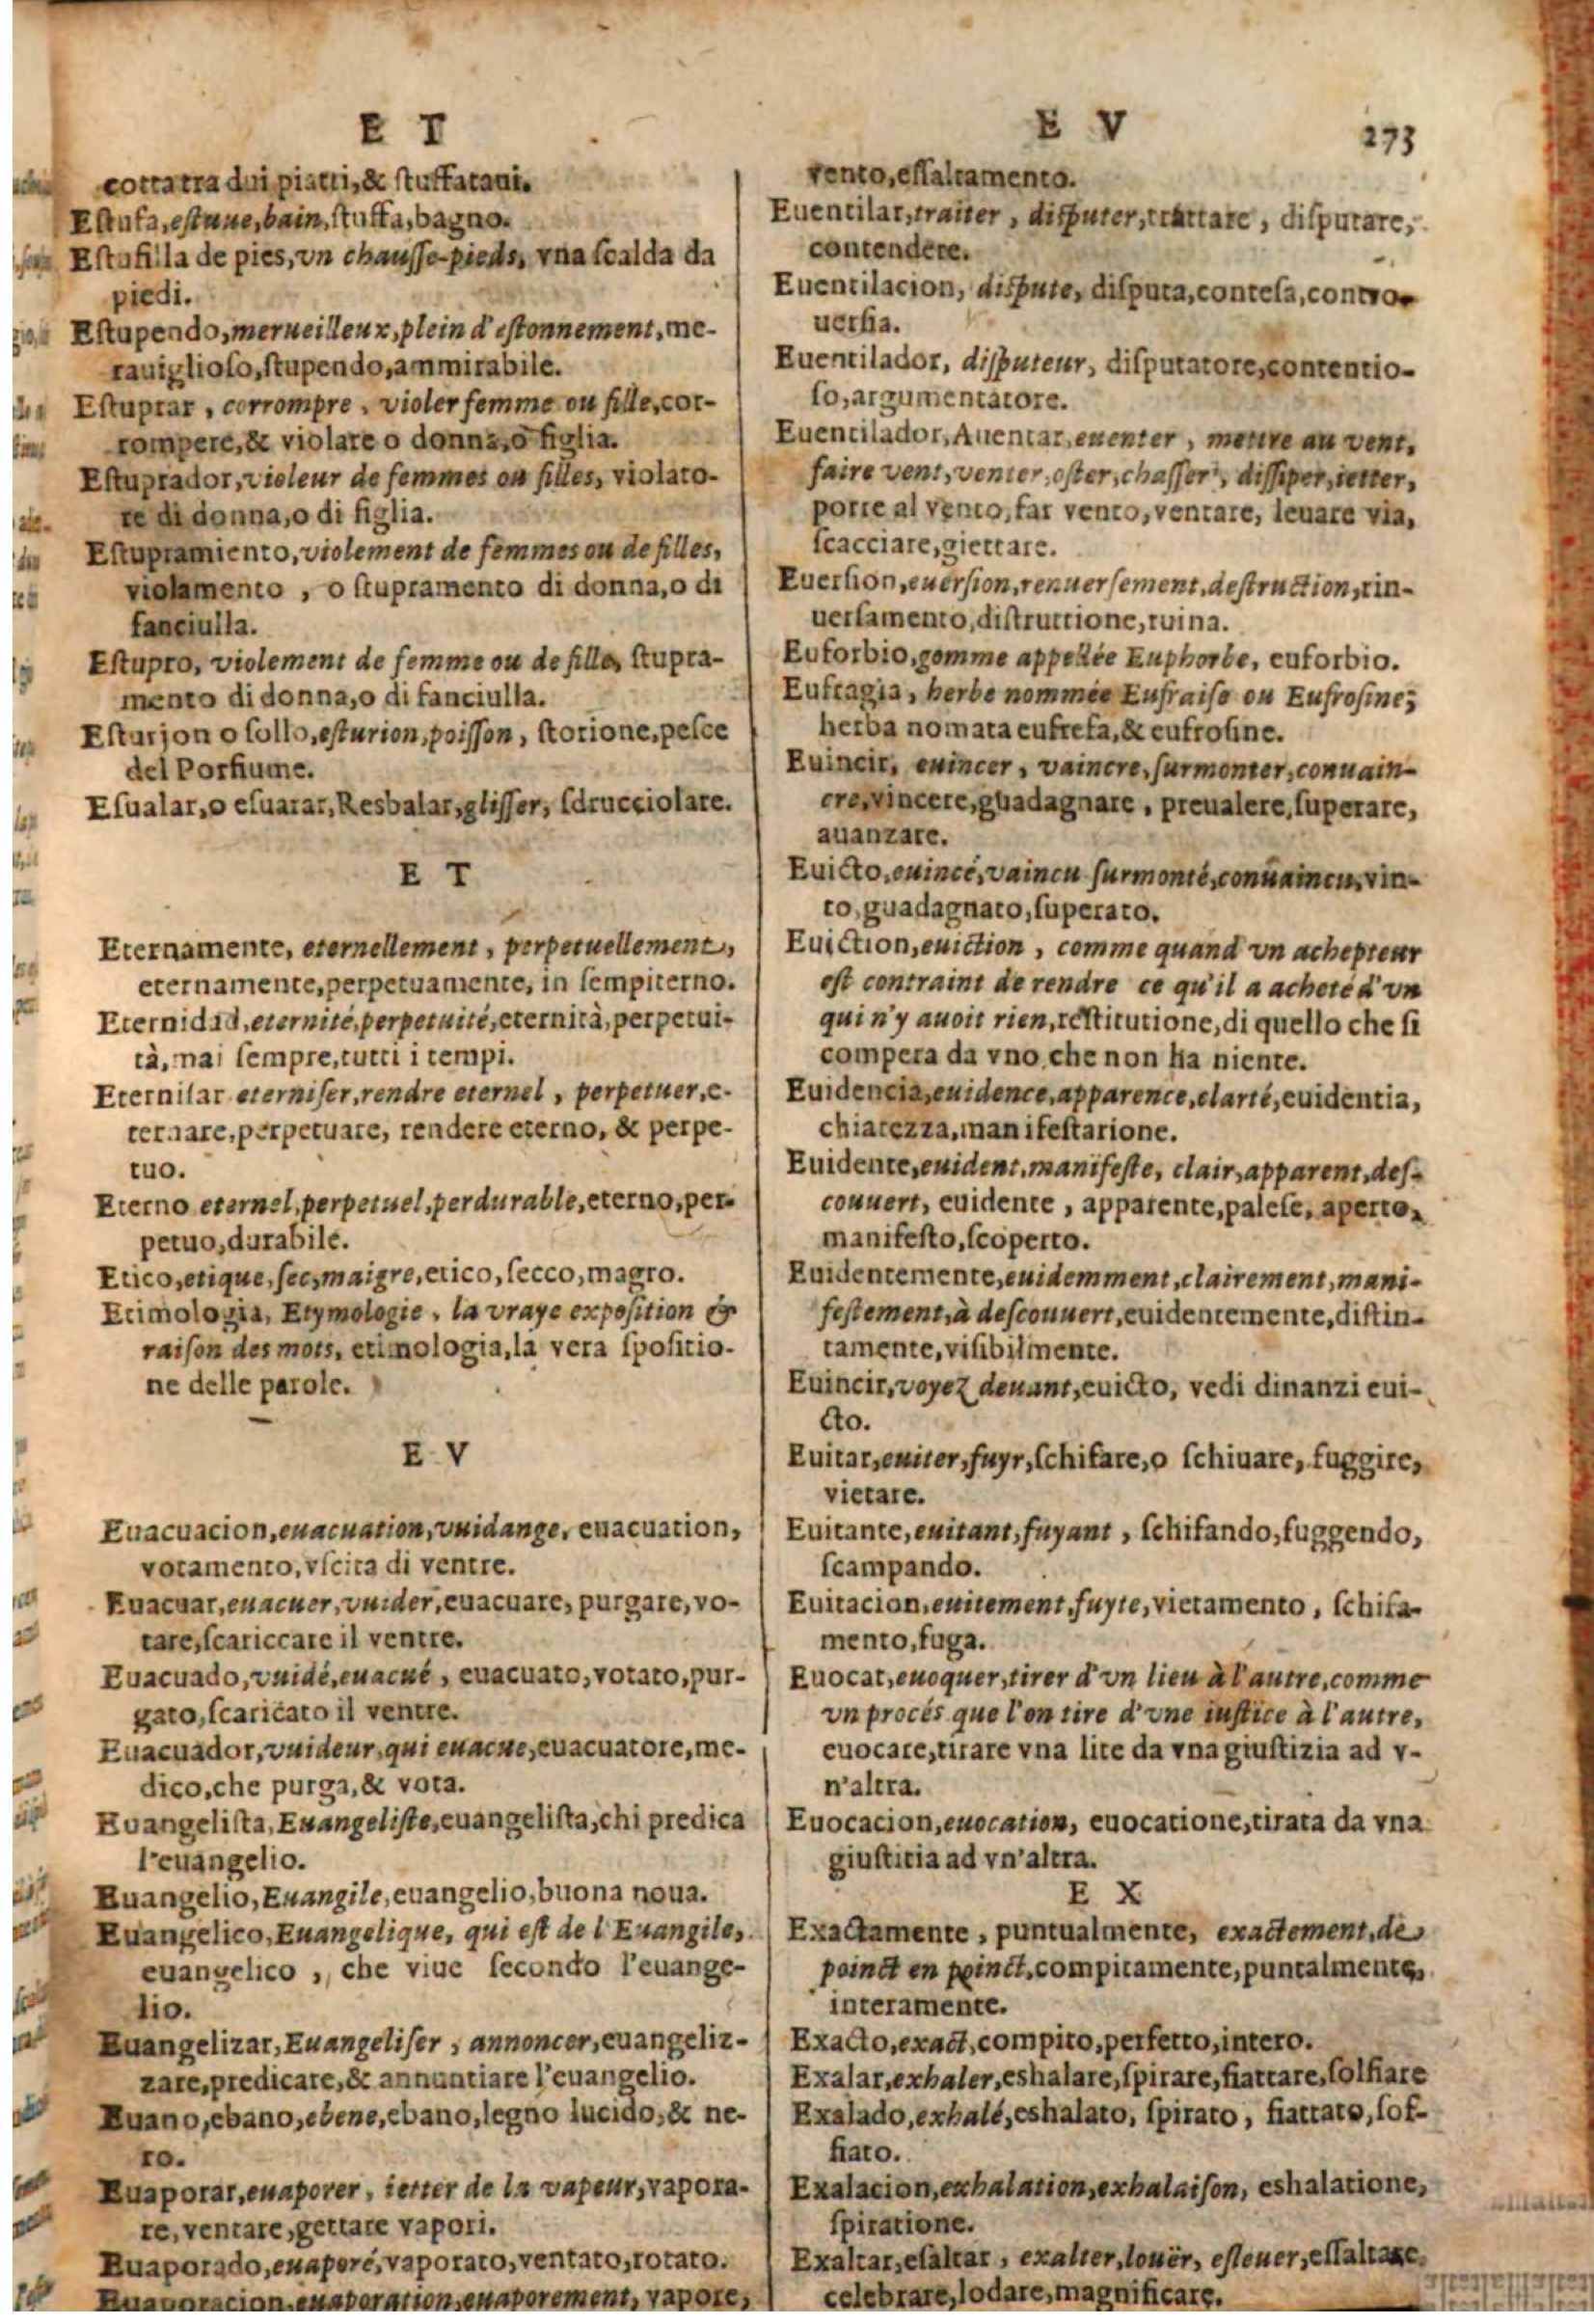 E T
cotta tra dui piatti,& ſtuffatani.
Eſtufa,eſtuue,bain,ſtuffa,bagno.
Eſtufilla de pies,vn chauſſe-pieds, vna ſcalda da
piedi.
Eſtupendo,merueilleux,plein d'eſtonnement,me-
rauiglioſo,ſtupendo,ammirabile.
Eſtuprar , corrompre , violer femme ou fille,cor-
rompere,& violare o donna,o figlia.
Eſtuprador,violeur de femmes ou filles, violato-
re di donna,o di figlia.
Eſtupramiento,violement de femmes ou de filles,
violamento , o ſtupramento di donna,o di
fanciulla.
Eſtupro, violement de femme ou de fille, ſtupra-
mento di donna,o di fanciulla.
Eſturjon o ſollo,eſturion,poiſſon, ſtorione,peſce
del Porfiume.
Eſualar,o eſuarar,Resbalar,gliſſer, ſdrucciolare.
E T
Eternamente, eternellement , perpetuellement,
eternamente,perpetuamente, in ſempiterno.
Eternidad,eternité,perpetuité,eternità,perpetui-
tà,mai ſempre,tutti i tempi.
Eterniſar eterniſer,rendre eternel , perpetuer,e-
ternare,perpetuare, rendere eterno, & perpe-
tuo.
Eterno eternel,perpetuel,perdurable,eterno,per-
petuo,durabile.
Etico,etique,ſec,maigre,etico,ſecco,magro.
Etimologia, Etymologie , la vraye expoſition &
raiſon des mots, etimologia,la vera ſpoſitio-
ne delle parole.
E V
Euacuacion,euacuation,vuidange, euacuation,
votamento,vſcita di ventre.
Euacuar,euacuer,vuider,euacuare, purgare,vo-
tare,ſcariccare il ventre.
Euacuado,vuidé,euacué , euacuato,votato,pur-
gato,ſcaricato il ventre.
Euacuador,vuideur,qui euacue,euacuatore,me-
dico,che purga,& vota.
Euangeliſta,Euangeliſte,euangeliſta,chi predica
l'euangelio.
Euangelio,Euangile,euangelio,buona noua.
Euangelico,Euangelique, qui eſt de l'Euangile,
euangelico , che viue ſecondo l'euange-
lio.
Euangelizar,Euangeliſer , annoncer,euangeliz-
zare,predicare,& annuntiare l'euangelio.
Euano,ebano,ebene,ebano,legno lucido,& ne-
ro.
Euaporar,euaporer, ietter de la vapeur,vapora-
re,ventare,gettare vapori.
Euaporado,euaporé,vaporato,ventato,rotato.
Euaporacion,euaporation,euaporement, vapore,
E V 273
vento,eſſaltamento.
Euentilar,traiter , diſputer,trattare , diſputare,
contendere.
Euentilacion, diſpute, diſputa,conteſa,contro-
uerſia.
Euentilador, diſputeur, diſputatore,contentio-
ſo,argumentatore.
Euentilador,Auentar,euenter , mettre au vent,
faire vent,venter,oſter,chaſſer, diſſiper,ietter,
porre al vento,far vento,ventare, leuare via,
ſcacciare,giettare.
Euerſion,euerſion,renuerſement,deſtruction,rin-
uerſamento,diſtruttione,ruina.
Euforbio,gomme appellée Euphorbe, euforbio.
Eufragia, herbe nommée Eufraiſe ou Eufroſine;
herba nomata eufreſa,& eufroſine.
Euincir, euincer, vaincre,ſurmonter,conuain-
cre,vincere,guadagnare , preualere,ſuperare,
auanzare.
Euicto,euincé,vaincu ſurmonté,conuaincu,vin-
to,guadagnato,ſuperato.
Euiction,euiction , comme quand vn achepteur
eſt contraint de rendre ce qu'il a acheté d'vn
qui n'y auoit rien,reſtitutione,di quello che ſi
compera da vno che non ha niente.
Euidencia,euidence,apparence,clarté,euidentia,
chiarezza,manifeſtatione.
Euidente,euident,manifeſte, clair,apparent,deſ-
couuert, euidente , apparente,paleſe, aperto,
manifeſto,ſcoperto.
Euidentemente,euidemment,clairement,mani-
feſtement,à deſcouuert,euidentemente,diſtin-
tamente,viſibilmente.
Euincir,voyez deuant,euicto, vedi dinanzi eui-
cto.
Euitar,euiter,fuyr,ſchifare,o ſchiuare, fuggire,
vietare.
Euitante,euitant,fuyant , ſchifando,fuggendo,
ſcampando.
Euitacion,euitement,fuyte,vietamento , ſchifa-
mento,fuga.
Euocar,euoquer,tirer d'vn lieu à l'autre,comme
vn procés que l'on tire d'vne iuſtice à l'autre,
euocare,tirare vna lite da vna giuſtizia ad v-
n'altra.
Euocacion,euocation, euocatione,tirata da vna
giuſtitia ad vn'altra.
E X
Exactamente , puntualmente, exactement,de
poinct en poinct,compitamente,puntalmente,
interamente.
Exacto,exact,compito,perfetto,intero.
Exalar,exhaler,eshalare,ſpirare,fiattare,ſolfiare
Exalado,exhalé,eshalato, ſpirato , fiattato,ſof-
fiato.
Exalacion,exhalation,exhalaiſon, eshalatione,
ſpiratione.
Exaltar,eſaltar , exalter,louër, eſleuer,eſſaltare
celebrare,lodare,magnificare.